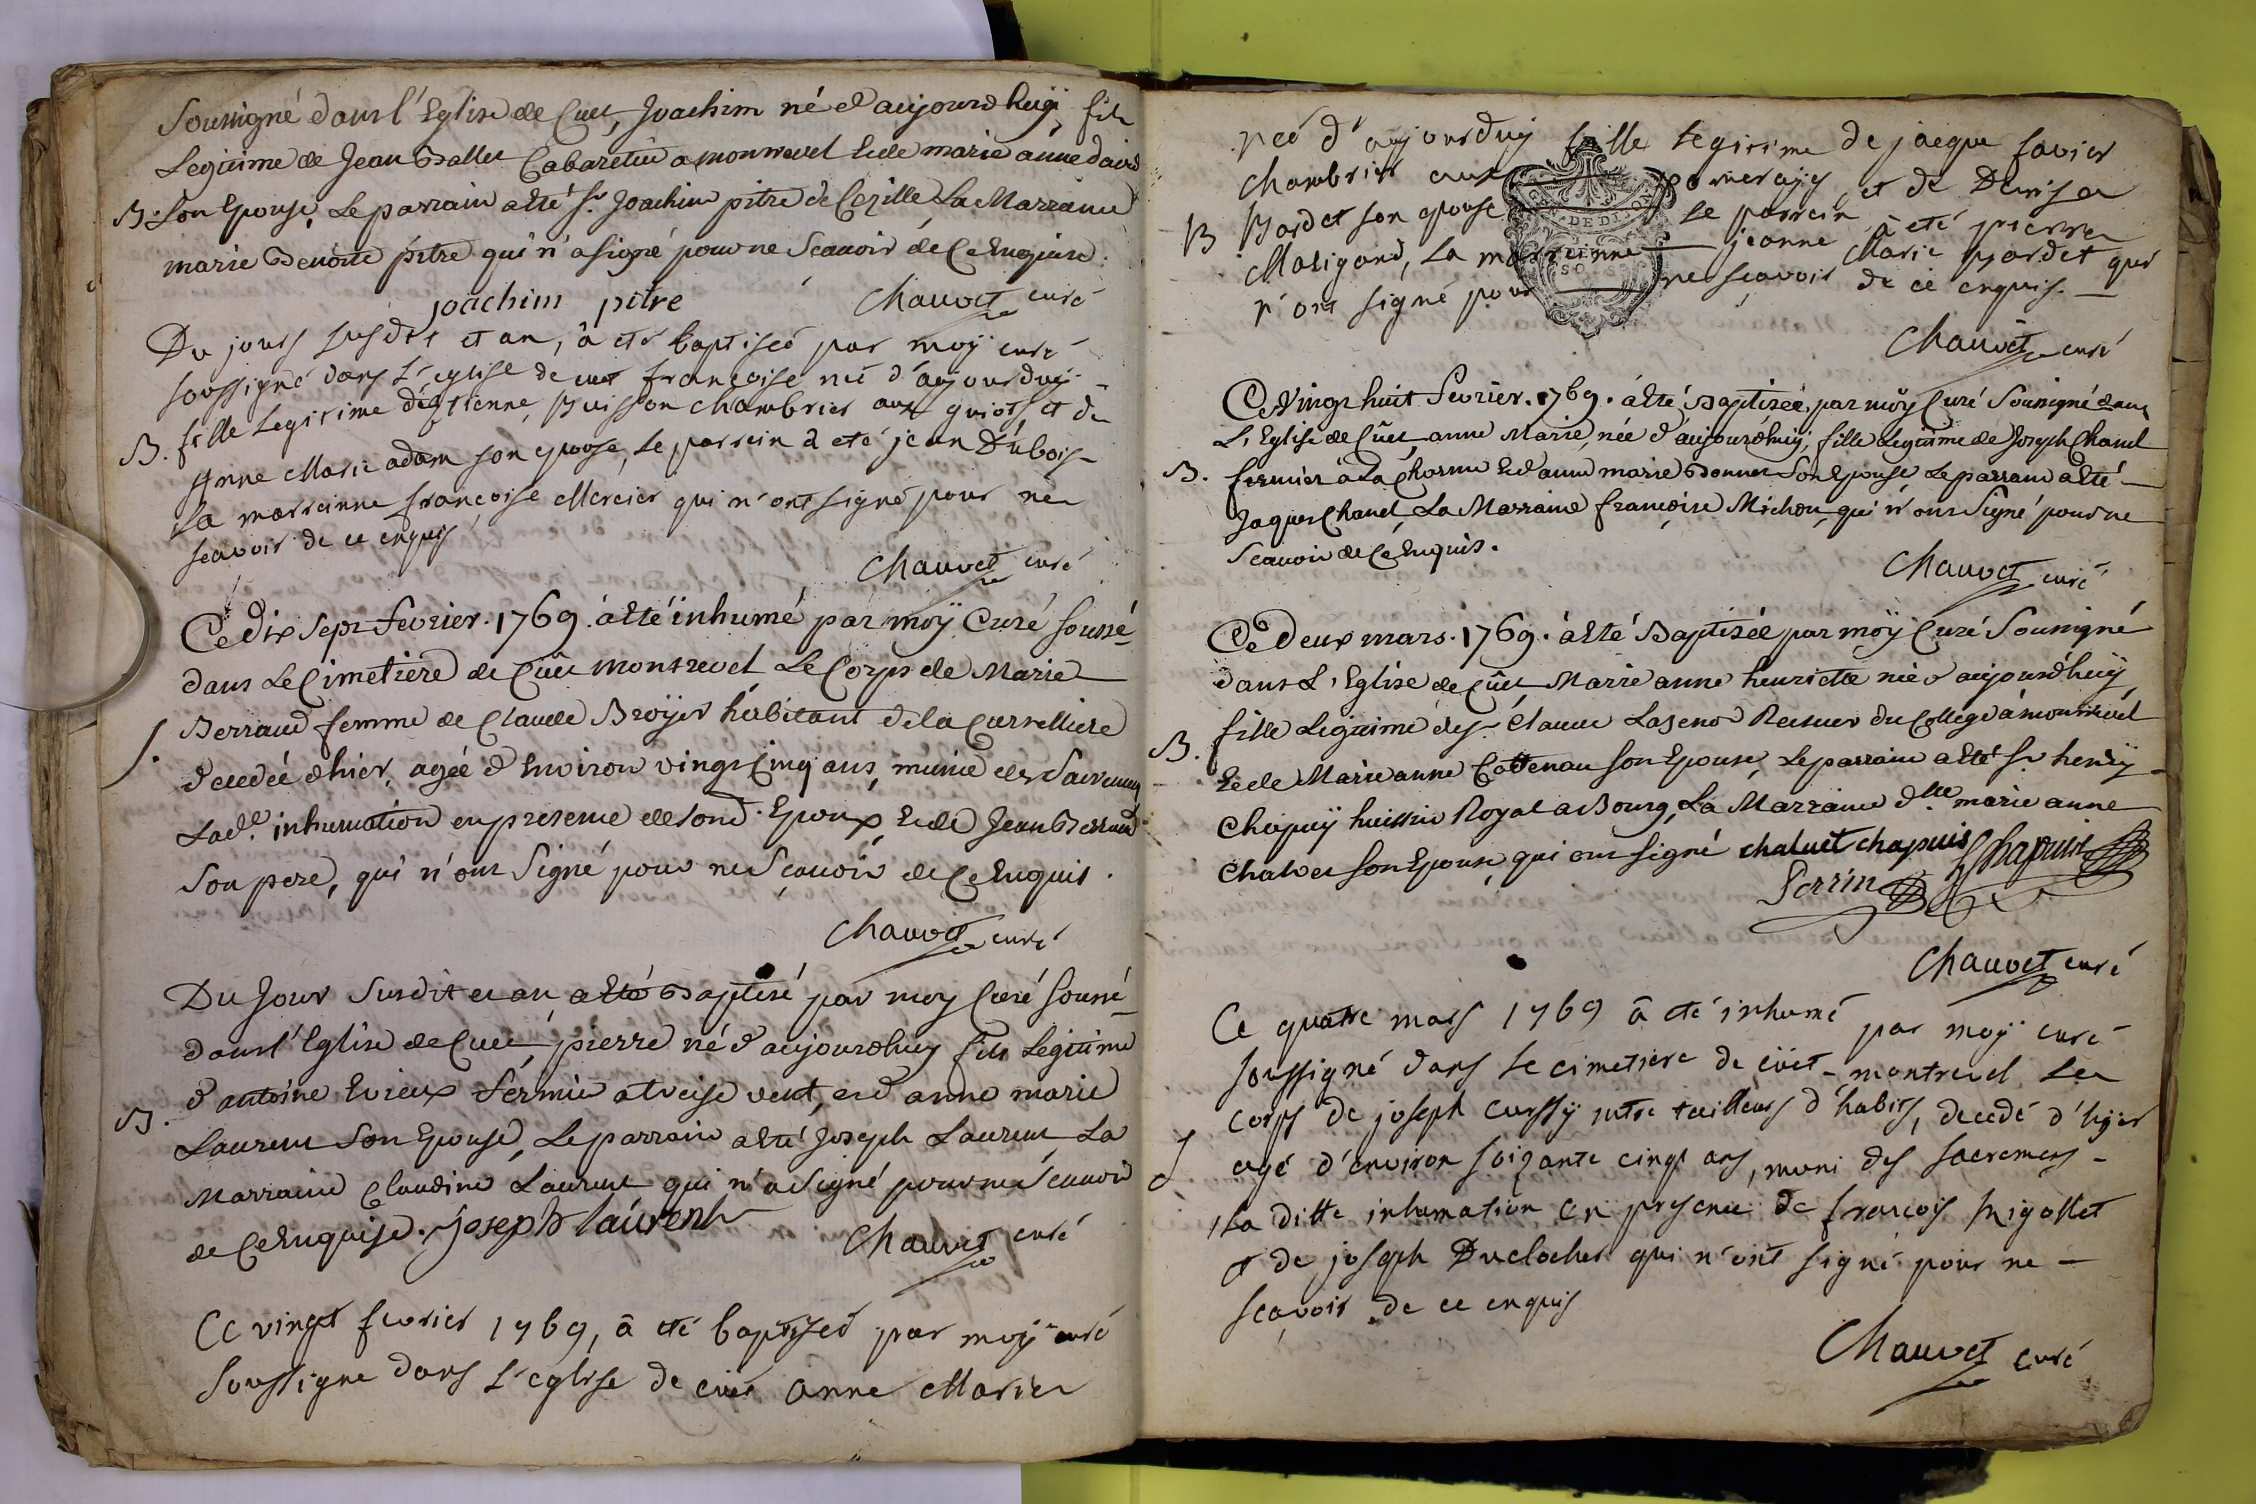 Soussigné dans l'Eglise de Cuet, Joachim né d'aujourd'huÿ, fils
Legitime de Jean Ballet Cabaretier a montrevel Et de marie anne david
B. Son Epouse, Le parrain a été Sr. Joachim pitre de Cezille, La Marraine
marie Benoite pitre qui n'a signé pour ne Scauoir de Ce Enquise.
joachim pitre Chauvet curé
Du jours susdit et an, à eté baptiseé par moÿ curé
soussigné dans L'eglise de cuet francoise neé d'aujourduÿ
B. fille Legitime d'estienne Buisson chambrier aux guiots, et de
Anne Marie adam son epouse, le parrein a eté jean Dubois
La marreinne francoise Mercier qui n'ont signé pour ne
scavoir de ce enquis
Chauvet curé
Ce dix Sept fevrier. 1769. a Eté inhumé par moÿ Curé Soussé
dans Le Cimetiere de Cuet montrevel Le Corps de Marie
S. Berraud femme de Claude Broÿer habitant de la
decedeé d'hier, ageé d'Environ vingt Cinq ans, munie des Sacremens
Lade. inhumation en presence de Sond. Epoux Et de Jean Berraud
Son pere, qui n'ont Signé pour ne Sçauoir de Ce Enquis.
Chauvet curé
Du Jour Susdit et an a Eté Baptisé par moy Curé Soussé
dans l'Eglise de Cuet, pierre né d'aujourdhuy fils Legitime
d'antoine Evieux fermier a treise vent, et d'anne marie
B. Laurent Son Epouse, Le parrain a Eté Joseph Laurent La
Marraine Claudine Laurent qui n'a Signé pour ne Scauoir
de Ce Enquise. joseph laurent
Chauvet curé
Ce vingt fevrier 1769, à eté baptiseé par moÿ curé
Soussigne dans L'eglise de cuet anne Marie
neé d'aujourduÿ fille legitime de jacque favier
chambrier aux pomerays et de Denise
B Bardet son epouse le parrein à eté pierre
Maligand, La marreinne jeanne Marie Bardet qui
n'ont signé pour ne scavoir de ce enquis.
Chauvet curé
Ce Vingt huit fevrier. 1769. a Eté Baptisée, par moÿ Curé Soussigné dans
L'Eglise de Cuet, anne Marie, née d'aujourdhuÿ, fille Legitime de Joseph Chanel
B. fermier à La Charme Et d'anne marie Bonnet Son Epouse, Le parrain a Eté
Jaques Chanel, La Marraine françoise Michon, qui n'ont Signé pour ne
Scauoir de Ce Enquis.
Chauvet curé
Ce Deux mars. 1769. a Eté Baptisée par moÿ Curé Soussigné
dans L'Eglise de Cuet Marie anne henriette née d'aujourd'huÿ
B. fille Legitime de Sr. Claude Recteur du College a montrevel
Et de Marie anne son Epouse, Le parrain a Eté Sr henrÿ
Chapuÿ huissier Royal a Bourg, La Marraine dlle marie anne
Chalvet son Epouse, qui ont signé chaluet chapuis Chapuis
Perrin
Chauvet curé
Ce quatre mars 1769 à eté inhumé par moÿ curé
soussigné dans le cimetiere de cuet-montrevel Le
corps de joseph tailleurs d'habits, decedé d'hÿer
S agé d'environ soizante cinq ans, muni des sacremens
La ditte inhumation en presence de francois Migollet
et de joseph Duclocher qui n'ont signé pour ne
scavoir de ce enquis
Chauvet curé